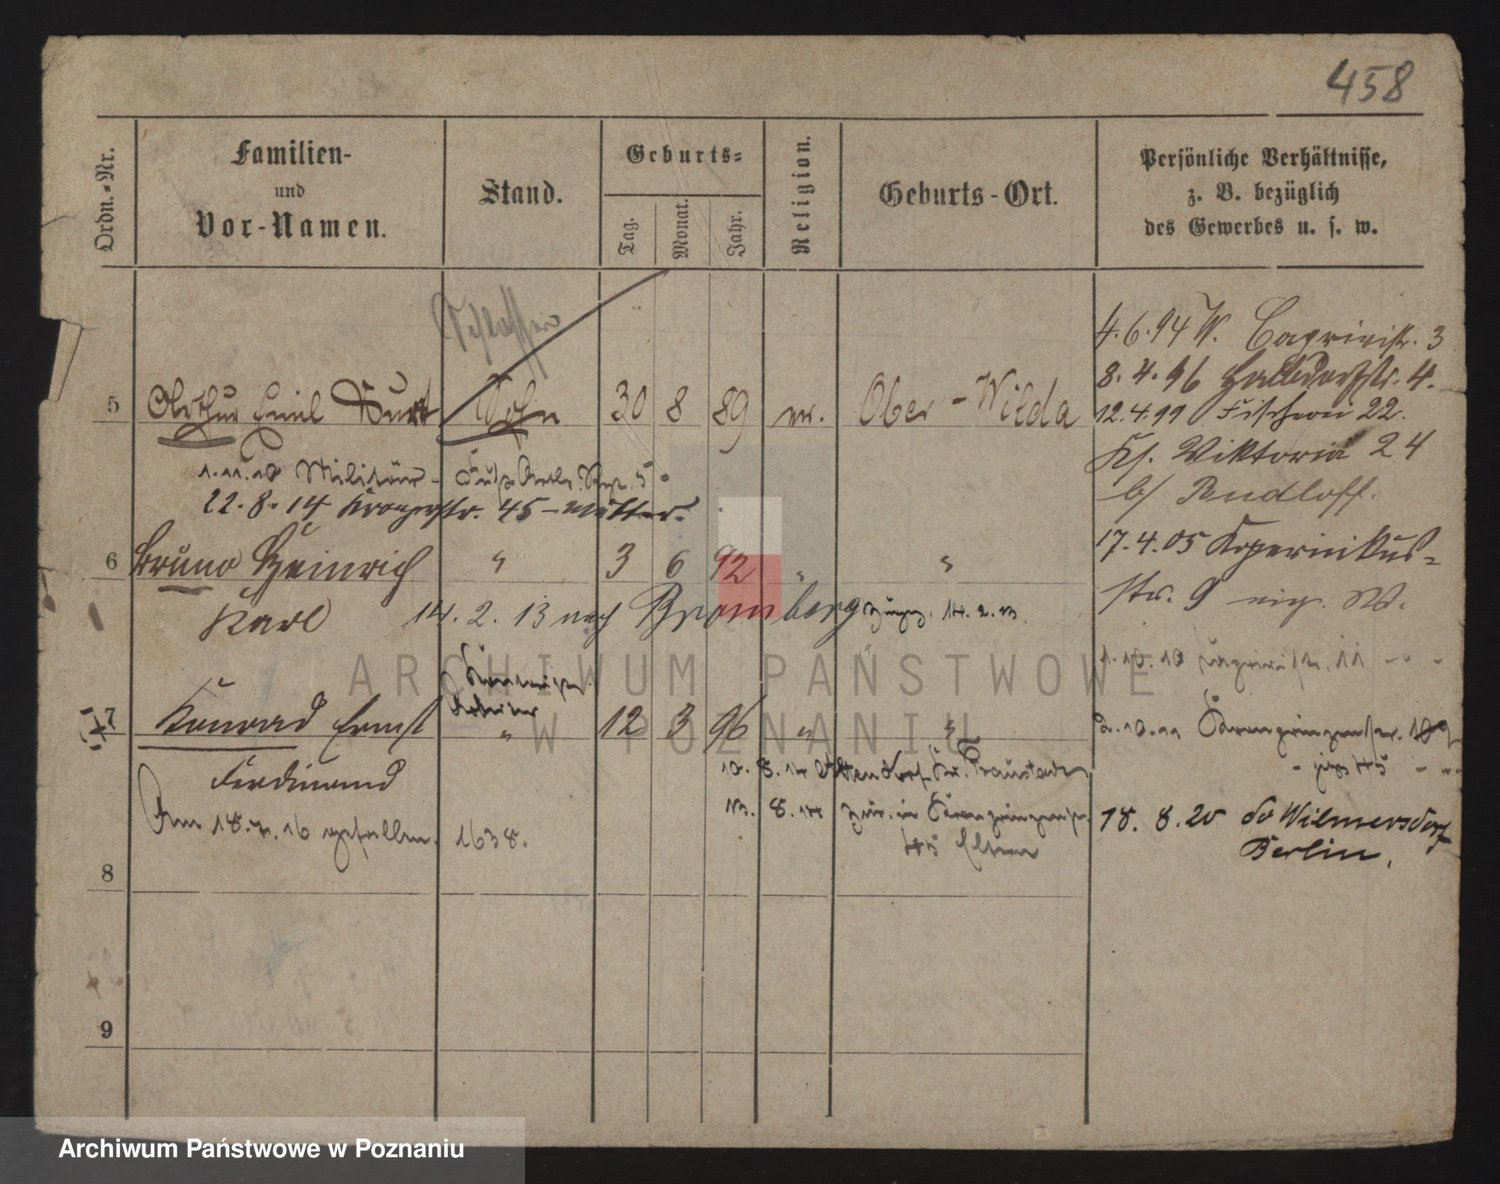 458
Ordn.-Nr.
Familien-
und
Vor-Namen.
Stand.
Geburts-
Tag.
Monat.
Jahr.
Religion.
Geburts-Ort.
Persönliche Verhältnisse,
z. B. bezüglich
des Gewerbes u. s. w.
5 Arthur Emil Kurt Sohn 30 8 89 ev. Ober-Wilda
1.11.10 Militär-
22.8.14 Kronprinzstr. 45 - Mutter.
6 Bruno Heinrich " 3 6 92 " "
Karl 14.2.13 nach Bromberg 14.2.13.
7 Konrad Ernst Arbeiter " 12 3 96 " "
Ferdinand
Am 18.7.16 gefallen. 1638.
10.8.14
13.8.14 zur. in Kronprinzenstr.
45 Eltern
8
9
4.6.94 W. Caprivistr. 3
8.4.96 4.
12.4.99 Fischerei 22.
Ks. Viktoria 24
b/ Pendloff.
17.4.05 Kopernikus-
str. 9 W.
1.10.10 11
2.10.11 Kronprinzenstr.
jetzt 45
18.8.20 Wilmersdorf
Berlin.
ARCHIWUM PAŃSTWOWE
W POZNANIU
Archiwum Państwowe w Poznaniu